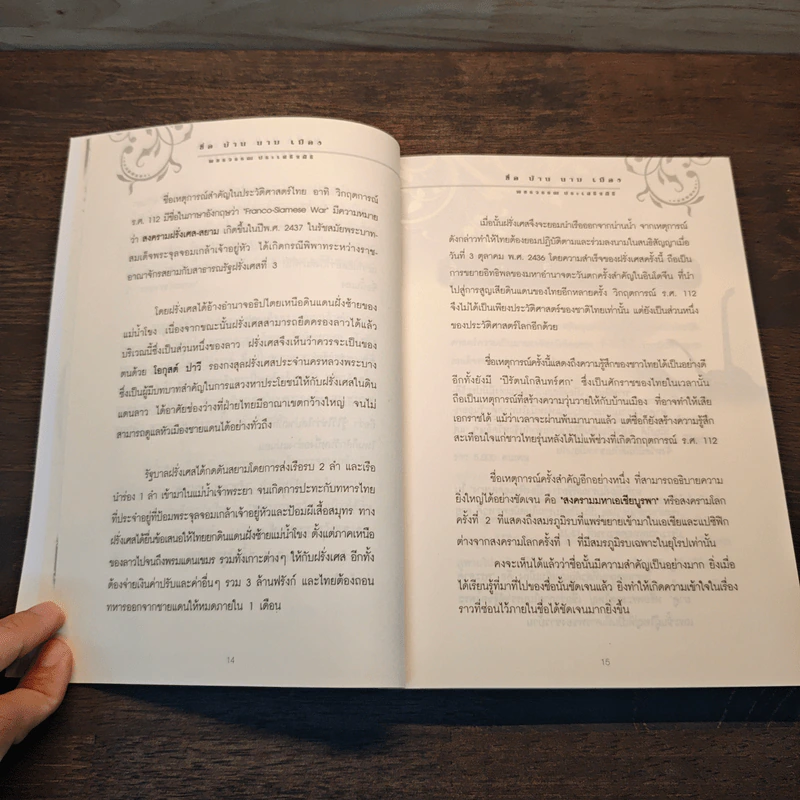 ชื่อ บ้าน นาม เมือง
ชื่อเหตุการณ์สำคัญในประวัติศาสตร์ไทย อาทิ วิกฤตการณ์
ร.ศ. 112 มีชื่อในภาษาอังกฤษว่า "Franco-Siamese War" มีความหมาย
ว่า สงครามฝรั่งเศส-สยาม เกิดขึ้นในปีพ.ศ. 2437 ในรัชสมัยพระบาท-
สมเด็จพระจุลจอมเกล้าเจ้าอยู่หัว ได้เกิดกรณีพิพาทระหว่างราช-
อาณาจักรสยามกับสาธารณรัฐฝรั่งเศสที่ 3
โดยฝรั่งเศสได้อ้างอำนาจอธิปไตยเหนือดินแดนฝั่งซ้ายของ
แม่น้ำโขง เนื่องจากขณะนั้นฝรั่งเศสสามารถยึดครองลาวได้แล้ว
บริเวณนี้ซึ่งเป็นส่วนหนึ่งของลาว ฝรั่งเศสจึงเห็นว่าควรจะเป็นของ
ตนด้วย โอกุสต์ ปาวี รองกงสุลฝรั่งเศสประจำนครหลวงพระบาง
ซึ่งเป็นผู้มีบทบาทสำคัญในการแสวงหาประโยชน์ให้กับฝรั่งเศสในดิน
แดนลาว ได้อาศัยช่องว่างที่ฝ่ายไทยมีอาณาเขตกว้างใหญ่ จนไม่
สามารถดูแลหัวเมืองชายแดนได้อย่างทั่วถึง
รัฐบาลฝรั่งเศสได้กดดันสยามโดยการส่งเรือรบ 2 ลำ และเรือ
นำร่อง 1 ลำ เข้ามาในแม่น้ำเจ้าพระยา จนเกิดการปะทะกับทหารไทย
ที่ประจำอยู่ที่ป้อมพระจุลจอมเกล้าเจ้าอยู่หัวและป้อมผีเสื้อสมุทร ทาง
ฝรั่งเศสได้ยื่นข้อเสนอให้ไทยยกดินแดนฝั่งซ้ายแม่น้ำโขง ตั้งแต่ภาคเหนือ
ของลาวไปจนถึงพรมแดนเขมร รวมทั้งเกาะต่างๆ ให้กับฝรั่งเศส อีกทั้ง
ต้องจ่ายเงินค่าปรับและค่าอื่นๆ รวม 3 ล้านฟรังก์ และไทยต้องถอน
ทหารออกจากชายแดนให้หมดภายใน 1 เดือน
14
ชื่อ บ้าน นาม เมือง
เมื่อนั้นฝรั่งเศสจึงจะยอมนำเรือออกจากน่านน้ำ จากเหตุการณ์
ดังกล่าวทำให้ไทยต้องยอมปฏิบัติตามและร่วมลงนามในสนธิสัญญาเมื่อ
วันที่ 3 ตุลาคม พ.ศ. 2436 โดยความสำเร็จของฝรั่งเศสครั้งนี้ ถือเป็น
การขยายอิทธิพลของมหาอำนาจตะวันตกครั้งสำคัญในอินโดจีน ที่นำ
ไปสู่การสูญเสียดินแดนของไทยอีกหลายครั้ง วิกฤตการณ์ ร.ศ. 112
จึงไม่ได้เป็นเพียงประวัติศาสตร์ของชาติไทยเท่านั้น แต่ยังเป็นส่วนหนึ่ง
ของประวัติศาสตร์โลกอีกด้วย
ชื่อเหตุการณ์ครั้งนี้แสดงถึงความรู้สึกของชาวไทยได้เป็นอย่างดี
อีกทั้งยังมี "ปีรัตนโกสินทร์ศก" ซึ่งเป็นศักราชของไทยในเวลานั้น
ถือเป็นเหตุการณ์ที่สร้างความวุ่นวายให้กับบ้านเมือง ที่อาจทำให้เสีย
เอกราชได้ แม้ว่าเวลาจะผ่านพ้นมานานแล้ว แต่ชื่อก็ยังสร้างความรู้สึก
สะเทือนใจแก่ชาวไทยรุ่นหลังได้ไม่แพ้ช่วงที่เกิดวิกฤตการณ์ ร.ศ. 112
ชื่อเหตุการณ์ครั้งสำคัญอีกอย่างหนึ่ง ที่สามารถอธิบายความ
ยิ่งใหญ่ได้อย่างชัดเจน คือ "สงครามมหาเอเชียบูรพา" หรือสงครามโลก
ครั้งที่ 2 ที่แสดงถึงสมรภูมิรบที่แพร่ขยายเข้ามาในเอเชียและแปซิฟิก
ต่างจากสงครามโลกครั้งที่ 1 ที่มีสมรภูมิรบเฉพาะในยุโรปเท่านั้น
คงจะเห็นได้แล้วว่าชื่อนั้นมีความสำคัญเป็นอย่างมาก ยิ่งเมื่อ
ได้เรียนรู้ที่มาที่ไปของชื่อนั้นชัดเจนแล้ว ยิ่งทำให้เกิดความเข้าใจในเรื่อง
ราวที่ซ่อนไว้ภายในชื่อได้ชัดเจนมากยิ่งขึ้น
15